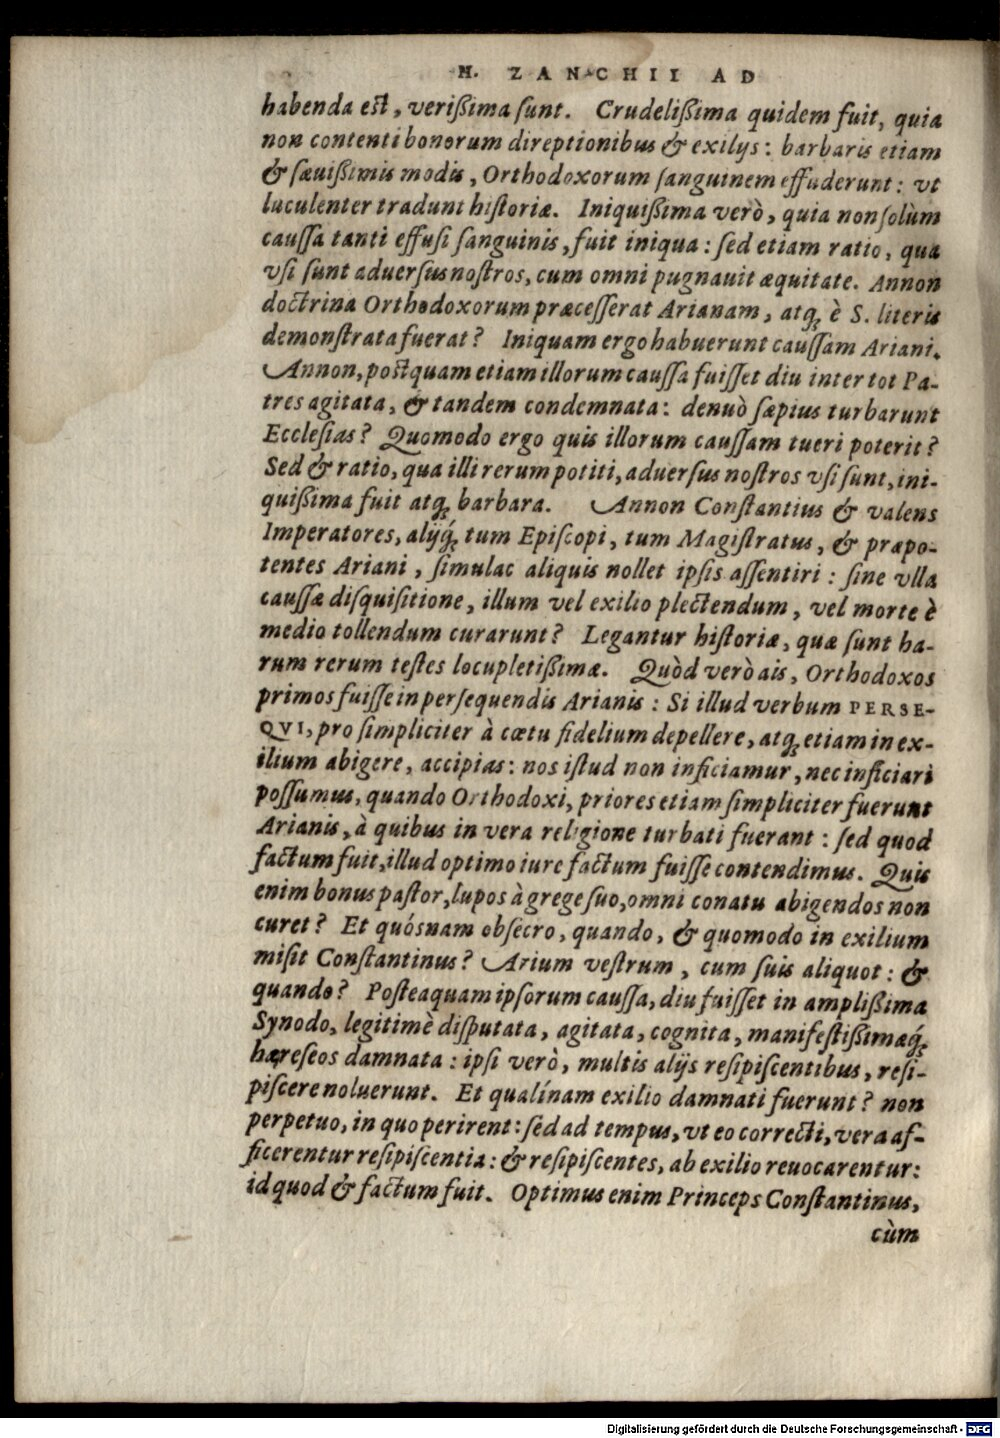 H. ZANCHII AD
habenda est, verißima sunt. Crudelißima quidem fuit, quia
non contenti bonorum direptionibus & exilijs: barbaris etiam
& sæuißimis modis, Orthodoxorum sanguinem effuderunt: vt
luculenter tradunt historiæ. Iniquißima verò, quia non solùm
caussa tanti effusi sanguinis, fuit iniqua: sed etiam ratio, qua
vsi sunt aduersus nostros, cum omni pugnauit æquitate. Annon
doctrina Orthodoxorum præcesserat Arianam, atq́; è S. literis
demonstrata fuerat? Iniquam ergo habuerunt caussam Ariani.
Annon, postquam etiam illorum caussa fuisset diu inter tot Pa-
tres agitata, & tandem condemnata: denuò sæpius turbarunt
Ecclesias? Quomodo ergo quis illorum caussam tueri poterit?
Sed & ratio, qua illi rerum potiti, aduersus nostros vsi sunt, ini-
quißima fuit atq; barbara. Annon Constantius & valens
Imperatores, alijq́; tum Episcopi, tum Magistratus, & præpo-
tentes Ariani, simulac aliquis nollet ipsis assentiri: sine vlla
caussæ disquisitione, illum vel exilio plectendum, vel morte è
medio tollendum curarunt? Legantur historiæ, quæ sunt ha-
rum rerum testes locupletißimæ. Quòd verò ais, Orthodoxos
primos fuisse in persequendis Arianis: Si illud verbum PERSE-
QVI, pro simpliciter à cœtu fidelium depellere, atq; etiam in ex-
ilium abigere, accipias: nos istud non inficiamur, nec inficiari
possumus, quando Orthodoxi, priores etiam simpliciter fuerunt
Arianis, à quibus in vera religione turbati fuerant: sed quod
factum fuit, illud optimo iure factum fuisse contendimus. Quis
enim bonus pastor, lupos à grege suo, omni conatu abigendos non
curet? Et quósnam obsecro, quando, & quomodo in exilium
misit Constantinus? Arium vestrum, cum suis aliquot: &
quando? Posteaquam ipsorum caussa, diu fuisset in amplißima
Synodo, legitimè disputata, agitata, cognita, manifestißimæq́;
hæreseos damnata: ipsi verò, multis alijs resipiscentibus, resi-
piscere noluerunt. Et qualínam exilio damnati fuerunt? non
perpetuo, in quo perirent: sed ad tempus, vt eo correcti, vera af-
ficerentur resipiscentia: & resipiscentes, ab exilio reuocarentur:
id quod & factum fuit. Optimus enim Princeps Constantinus,
cùm
Digitalisierung gefördert durch die Deutsche Forschungsgemeinschaft - DFG